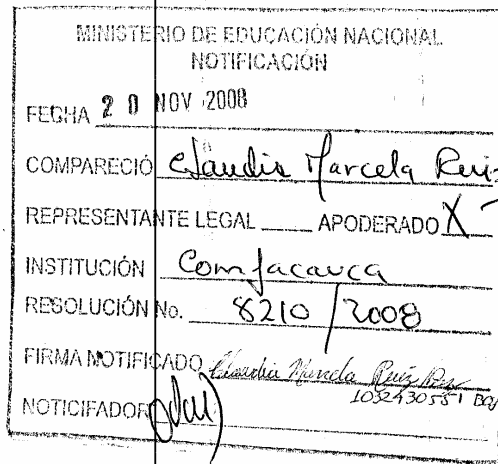 MINISTERIO DE EDUCACIÓN NACIONAL
NOTIFICACIÓN
FECHA 20 NOV 2008
COMPARECIÓ Claudia Marcela Ruiz
REPRESENTANTE LEGAL ____ APODERADO X
INSTITUCIÓN Comfacauca
RESOLUCIÓN No. 8210 / 2008
FIRMA NOTIFICADO Claudia Marcela Ruiz
NOTICIFADOR